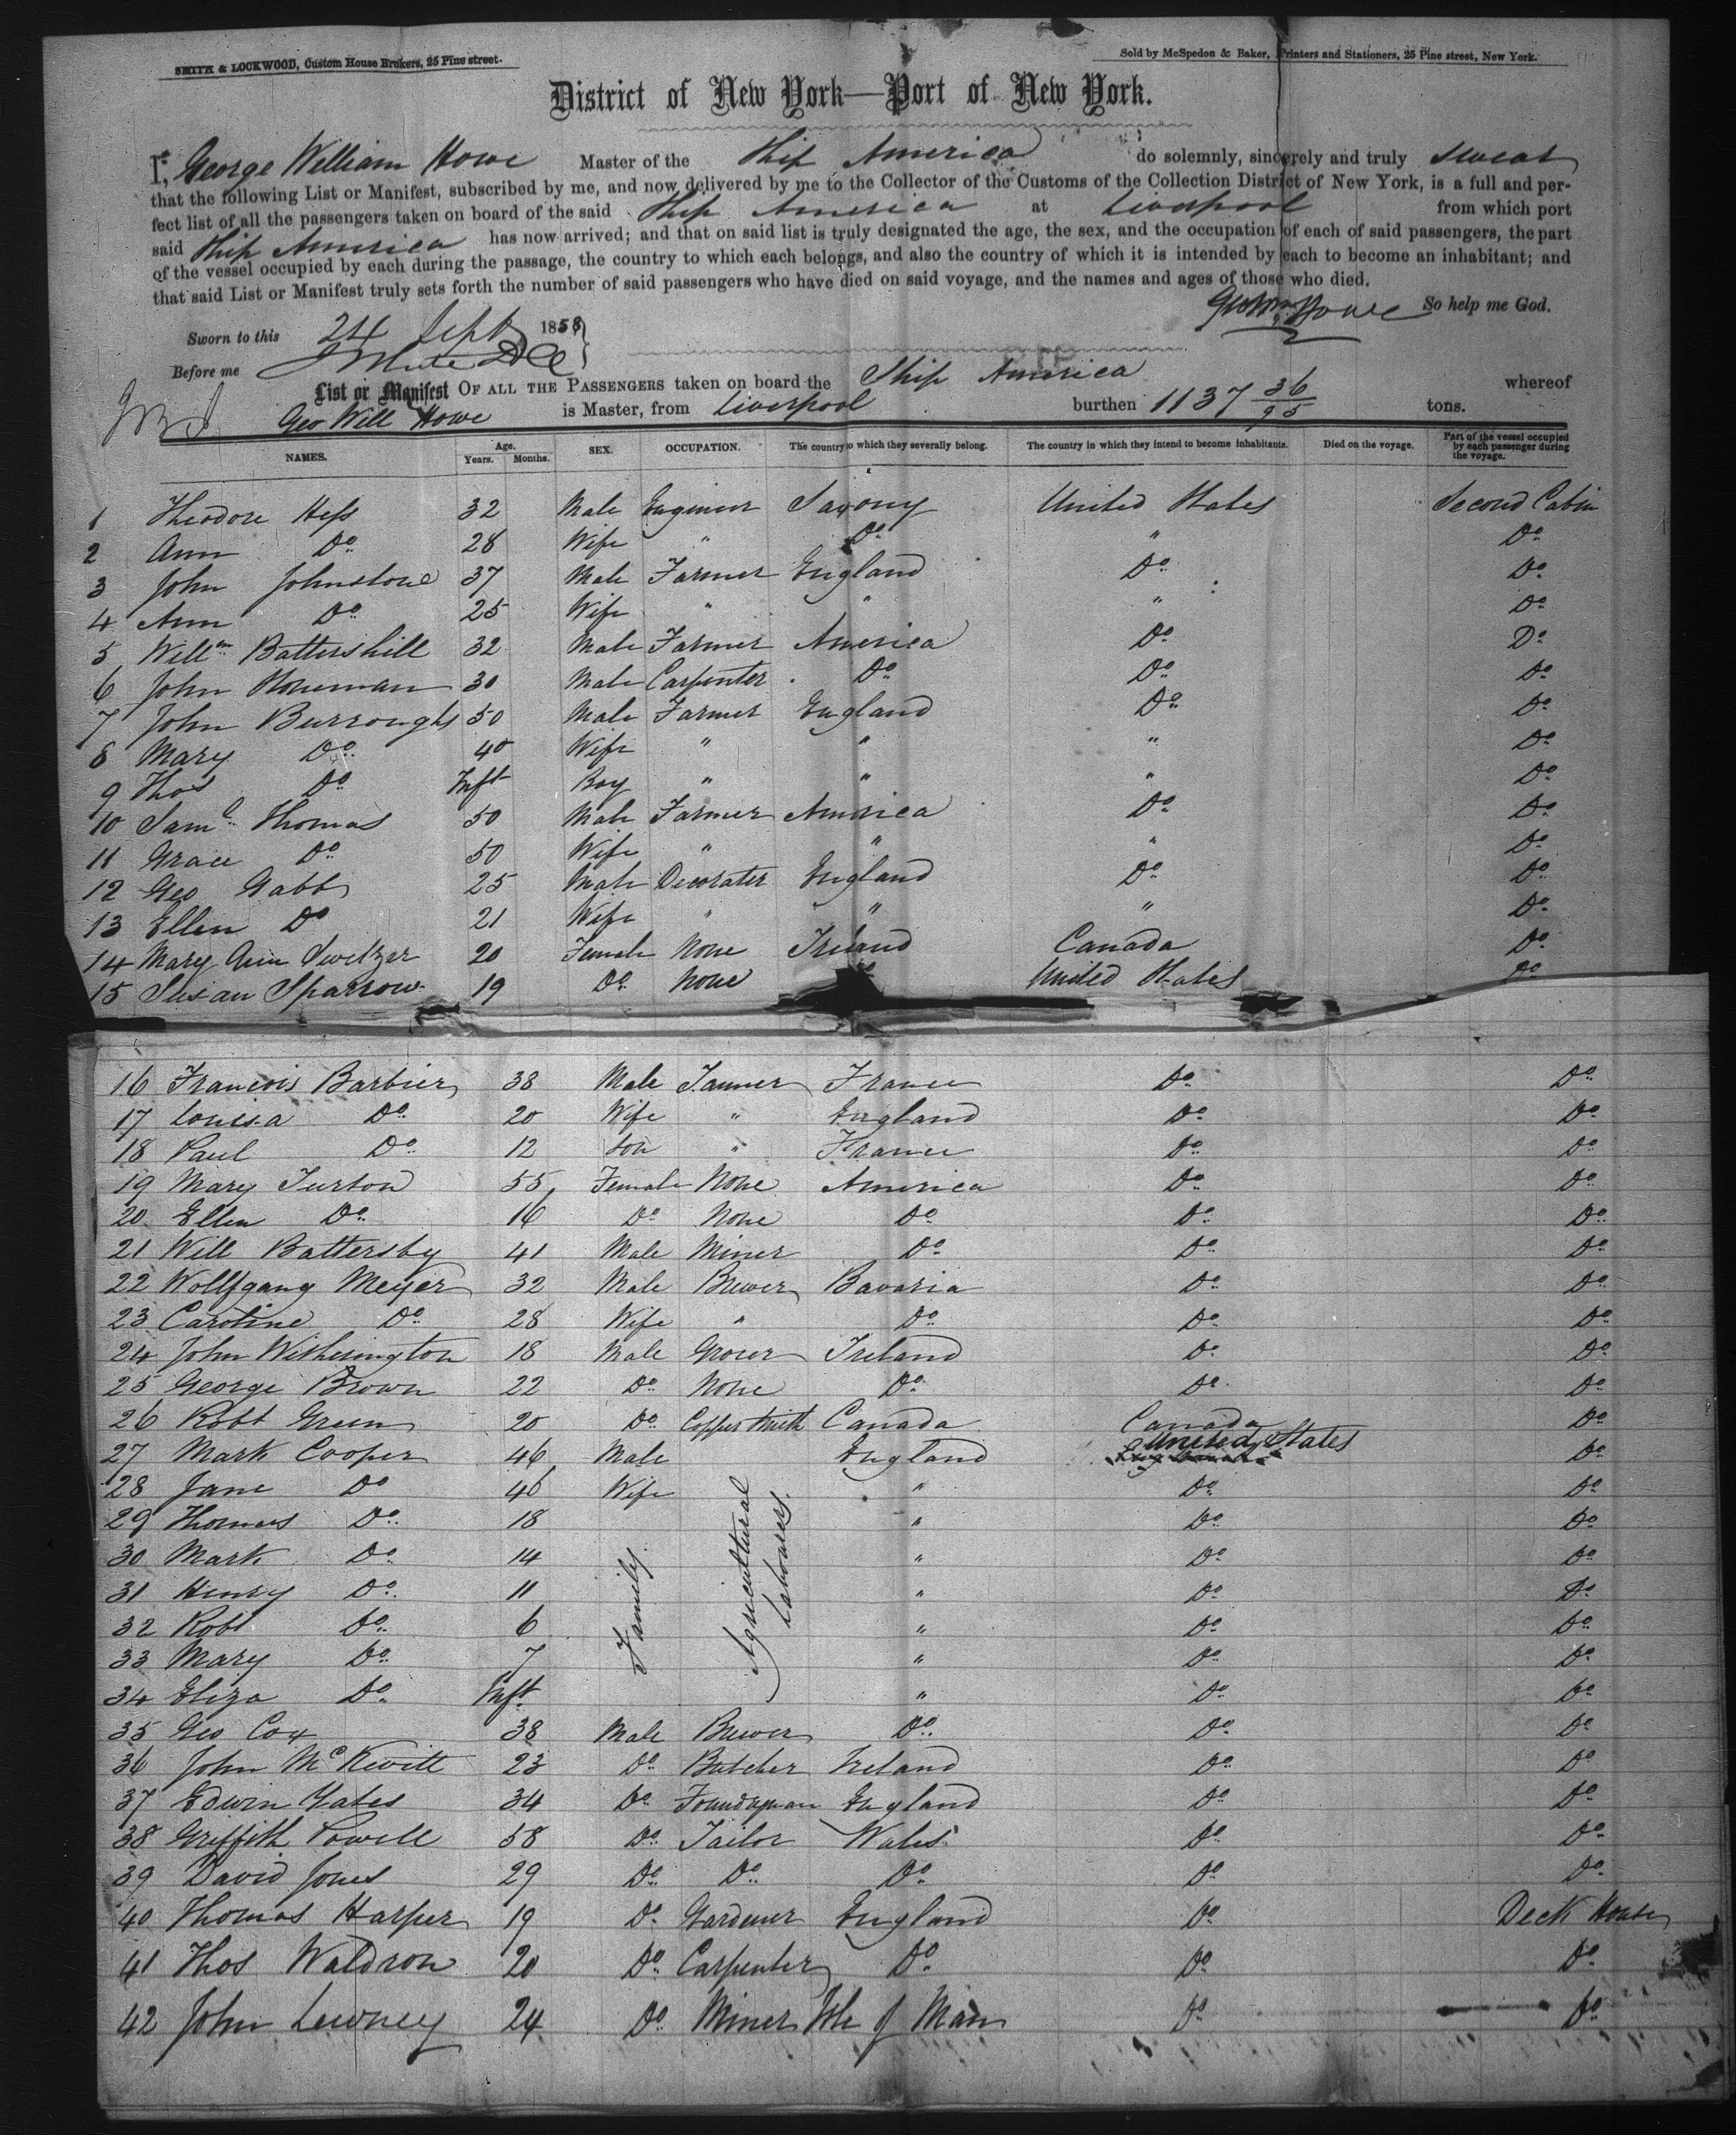 SMITH & LOCKWOOD, Custom House Brokers, 25 Pine street.
Sold by McSpedon & Baker, Printers and Stationers, 25 Pine street, New York.
District of New York—Port of New York.
I, George William Howe Master of the Ship America do solemnly, sincerely and truly swear
that the following List or Manifest, subscribed by me, and now delivered by me to the Collector of the Customs of the Collection District of New York, is a full and per-
fect list of all the passengers taken on board of the said Ship America at Liverpool from which port
said Ship America has now arrived; and that on said list is truly designated the age, the sex, and the occupation of each of said passengers, the part
of the vessel occupied by each during the passage, the country to which each belongs, and also the country of which it is intended by each to become an inhabitant; and
that said List or Manifest truly sets forth the number of said passengers who have died on said voyage, and the names and ages of those who died.
Geo Wm Howe So help me God.
Sworn to this 24 Sept 1858
Before me
List or Manifest OF ALL THE PASSENGERS taken on board the Ship America whereof
Geo Will Howe is Master, from Liverpool burthen 1137 36/95 tons.
NAMES. Age. Years. Months. SEX. OCCUPATION. The country to which they severally belong. The country in which they intend to become inhabitants. Died on the voyage. Part of the vessel occupied by each passenger during the voyage.
1 Theodore Hess 32 Male Engineer Saxony United States Second Cabin
2 Ann Do 28 Wife " Do " Do
3 John Johnstone 37 Male Farmer England Do Do
4 Ann Do 25 Wife " " " Do
5 Willm Battershill 32 Male Farmer America Do Do
6 John Horseman 30 Male Carpenter Do Do Do
7 John Burroughs 50 Male Farmer England Do Do
8 Mary Do 40 Wife " " " Do
9 Thos Do Inft Boy " " " Do
10 Saml Thomas 50 Male Farmer America Do Do
11 Grace Do 50 Wife " " " Do
12 Geo Gabb 25 Male Decorater England Do Do
13 Ellen Do 21 Wife " " " Do
14 Mary Ann Switzer 20 Female None Ireland Canada Do
15 Susan Sparrow 19 Do None United States Do
16 Francois Barbier 38 Male Tanner France Do Do
17 Louisa Do 20 Wife " England Do Do
18 Paul Do 12 Son " France Do Do
19 Mary Turton 55 Female None America Do Do
20 Ellen Do 16 Do None Do Do Do
21 Will Battersby 41 Male Miner Do Do Do
22 Wolffgang Meyer 32 Male Brewer Bavaria Do Do
23 Caroline Do 28 Wife " Do Do Do
24 John Witherington 18 Male Grocer Ireland Do Do
25 George Brown 22 Do None Do Do Do
26 Robt Green 20 Do Coppersmith Canada Canada Do
27 Mark Cooper 46 Male England United States Do
28 Jane Do 46 Wife Agricultural Labourers. " Do Do
29 Thomas Do 18 Family " Do Do
30 Mark Do 14 " Do Do
31 Henry Do 11 " Do Do
32 Robt Do 6 " Do Do
33 Mary Do 7 " Do Do
34 Eliza Do Inft " Do Do
35 Geo Cox 38 Male Brewer Do Do Do
36 John McKevitt 23 Do Butcher Ireland Do Do
37 Edwin Yates 34 Do Foundryman England Do Do
38 Griffith Powell 58 Do Tailor Wales Do Do
39 David Jones 29 Do Do Do Do Do
40 Thomas Harper 19 Do Gardener England Do Deck House
41 Thos Waldron 20 Do Carpenter Do Do Do
42 John Lewney 24 Do Miner Isle of Man Do Do